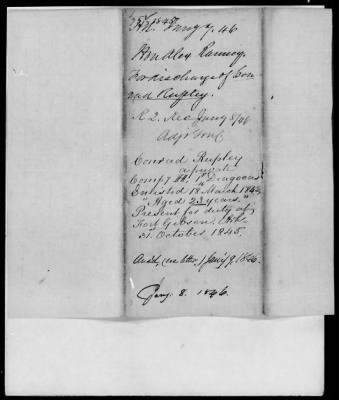 Jany 7. 46
Hon Alex Ramsey.
For discharge of Con
rad Rupley.
R 2. Rec Jany 8/46
Conrad Rupley
a private
Comp'y "H," 1st Dragoons
Enlisted 18 March 1842,
"Aged 23 years."
Present for duty at
Fort Gibson, the
31. October 1845.
(see letter) Jan'y 9, 1846.
Jany. 8. 1846.